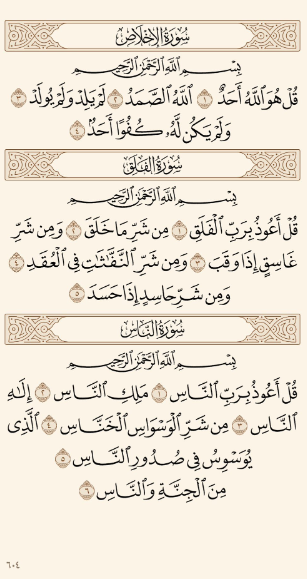 سُورَةُ الإِخْلَاصِ
بِسْمِ اللَّهِ الرَّحْمَٰنِ الرَّحِيمِ
قُلْ هُوَ اللَّهُ أَحَدٌ ١ اللَّهُ الصَّمَدُ ٢ لَمْ يَلِدْ وَلَمْ يُولَدْ ٣
وَلَمْ يَكُن لَّهُۥ كُفُوًا أَحَدٌۢ ٤
سُورَةُ الفَلَقِ
بِسْمِ اللَّهِ الرَّحْمَٰنِ الرَّحِيمِ
قُلْ أَعُوذُ بِرَبِّ الْفَلَقِ ١ مِن شَرِّ مَا خَلَقَ ٢ وَمِن شَرِّ
غَاسِقٍ إِذَا وَقَبَ ٣ وَمِن شَرِّ النَّفَّٰثَٰتِ فِي الْعُقَدِ ٤
وَمِن شَرِّ حَاسِدٍ إِذَا حَسَدَ ٥
سُورَةُ النَّاسِ
بِسْمِ اللَّهِ الرَّحْمَٰنِ الرَّحِيمِ
قُلْ أَعُوذُ بِرَبِّ النَّاسِ ١ مَلِكِ النَّاسِ ٢ إِلَٰهِ
النَّاسِ ٣ مِن شَرِّ الْوَسْوَاسِ الْخَنَّاسِ ٤ الَّذِي
يُوَسْوِسُ فِي صُدُورِ النَّاسِ ٥
مِنَ الْجِنَّةِ وَالنَّاسِ ٦
٦٠٤